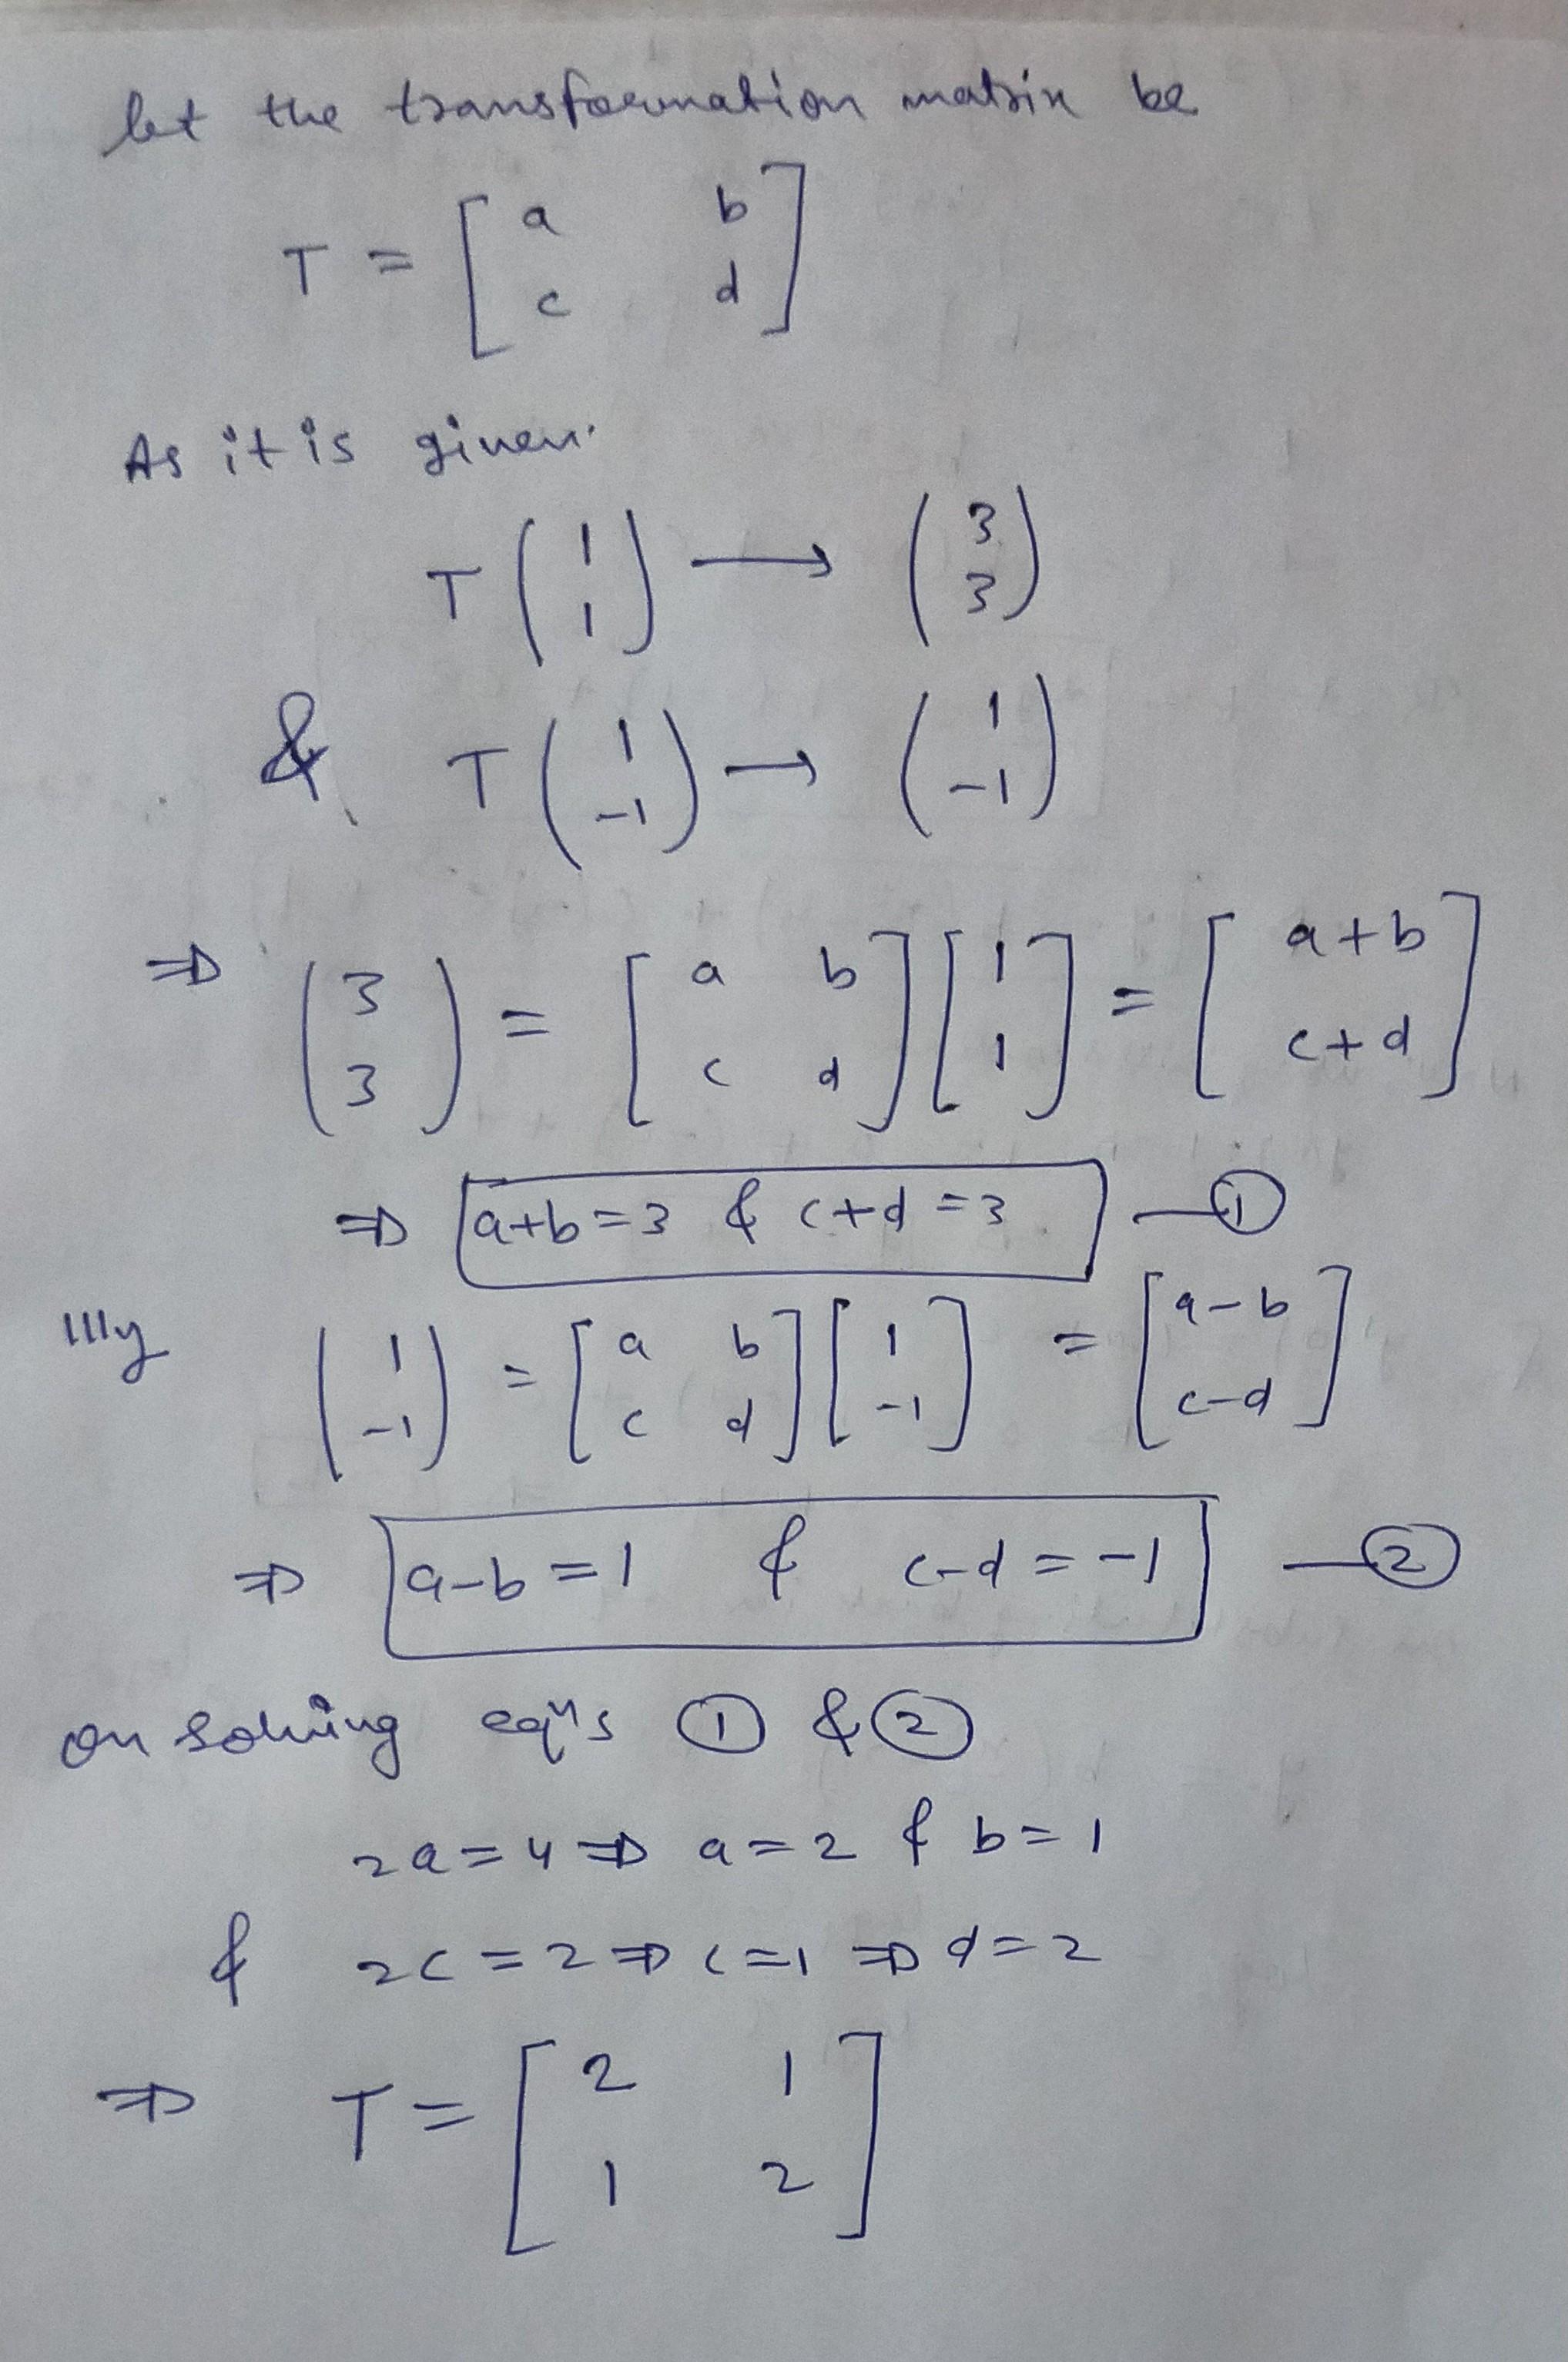 let the transformation matrix be
T = [ a b
c d ]
As it is given.
T ( 1
1 ) → ( 3
3 )
& T ( 1
-1 ) → ( 1
-1 )
⇒ ( 3
3 ) = [ a b
c d ] [ 1
1 ] = [ a+b
c+d ]
⇒ a+b=3 & c+d=3 — ①
|||y ( 1
-1 ) = [ a b
c d ] [ 1
-1 ] = [ a-b
c-d ]
⇒ a-b=1 & c-d=-1 — ②
on solving eqⁿs ① & ②
2a=4 ⇒ a=2 & b=1
& 2c=2 ⇒ c=1 ⇒ d=2
⇒ T = [ 2 1
1 2 ]